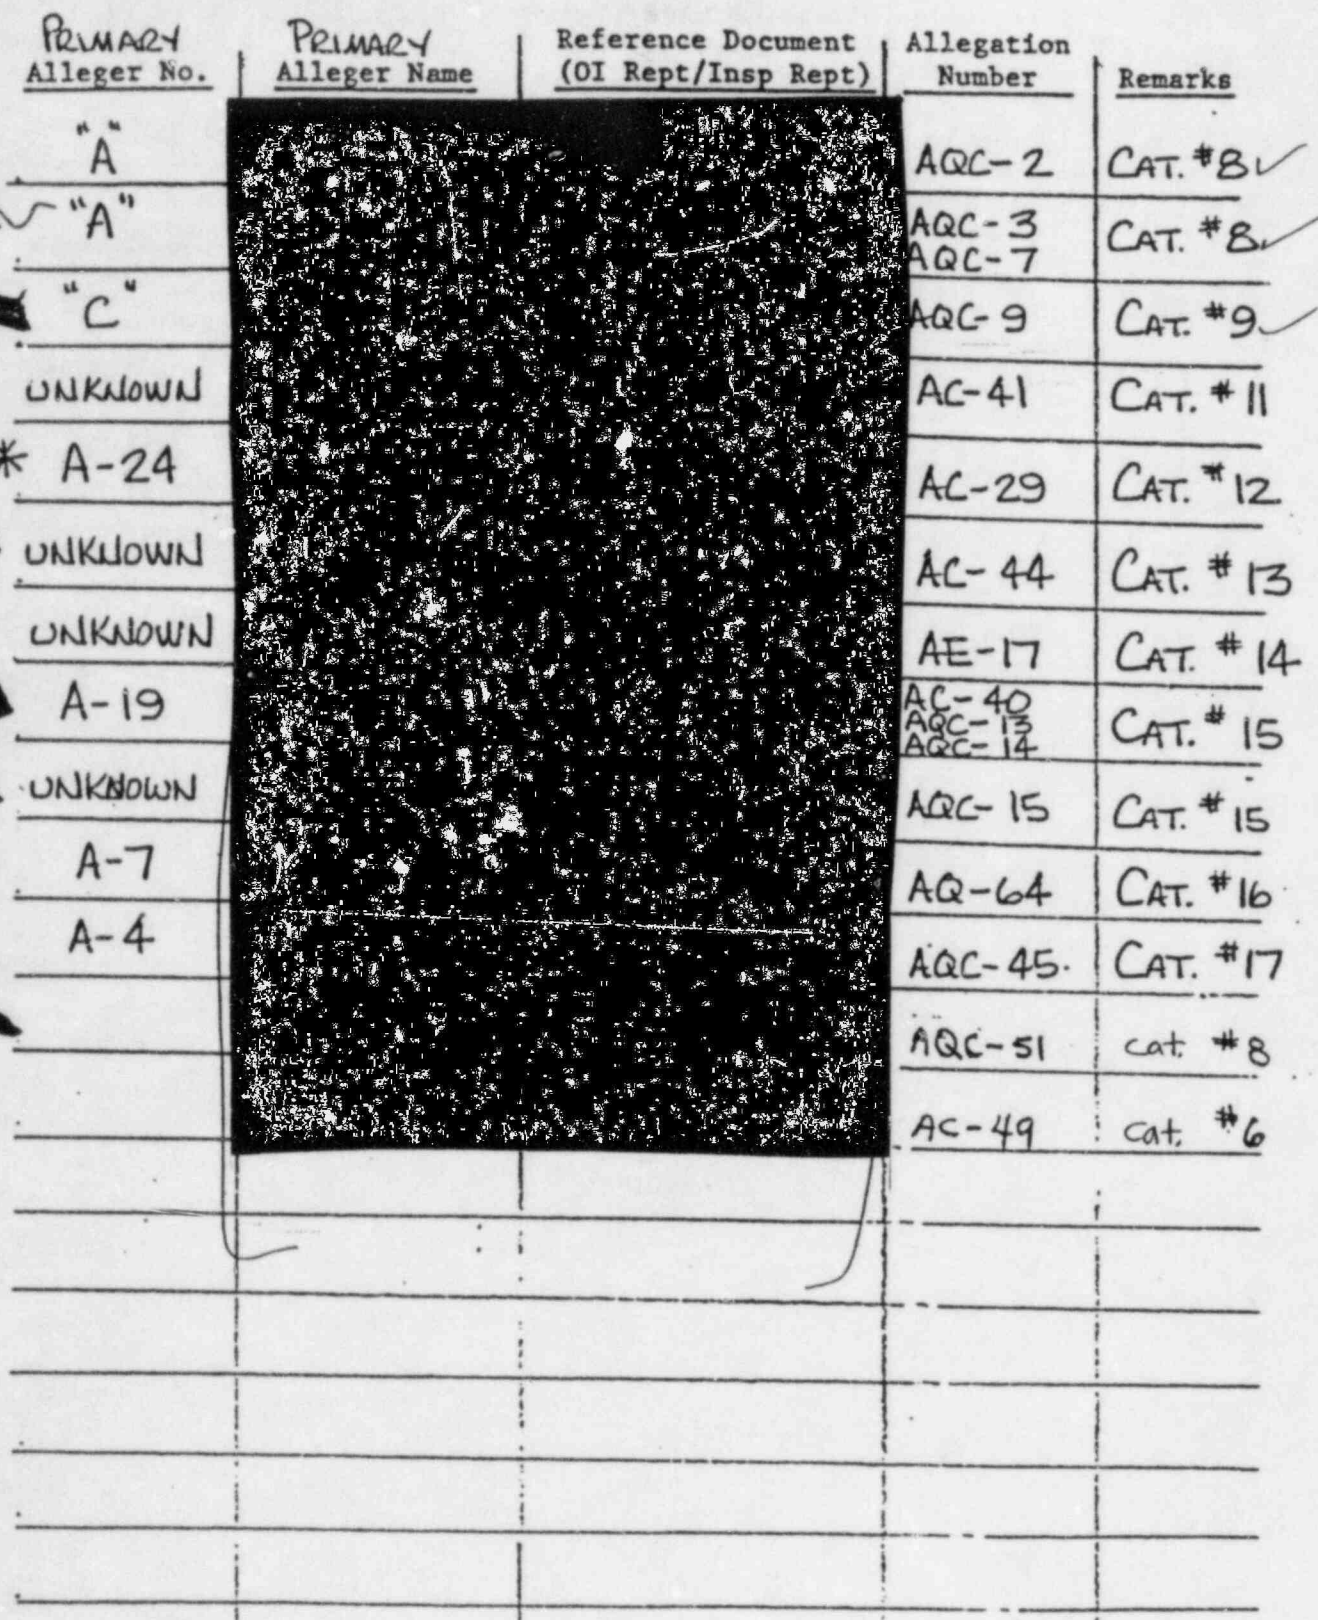 PRIMARY Alleger No. PRIMARY Alleger Name Reference Document (OI Rept/Insp Rept) Allegation Number Remarks
"A" AQC-2 CAT. #8
"A" AQC-3 AQC-7 CAT. #8
"C" AQC-9 CAT. #9
UNKNOWN AC-41 CAT. #11
* A-24 AC-29 CAT. #12
UNKNOWN AC-44 CAT. #13
UNKNOWN AE-17 CAT. #14
A-19 AC-40 AQC-13 AQC-14 CAT. #15
UNKNOWN AQC-15 CAT. #15
A-7 AQ-64 CAT. #16
A-4 AQC-45. CAT. #17
AQC-51 cat. #8
AC-49 cat. #6